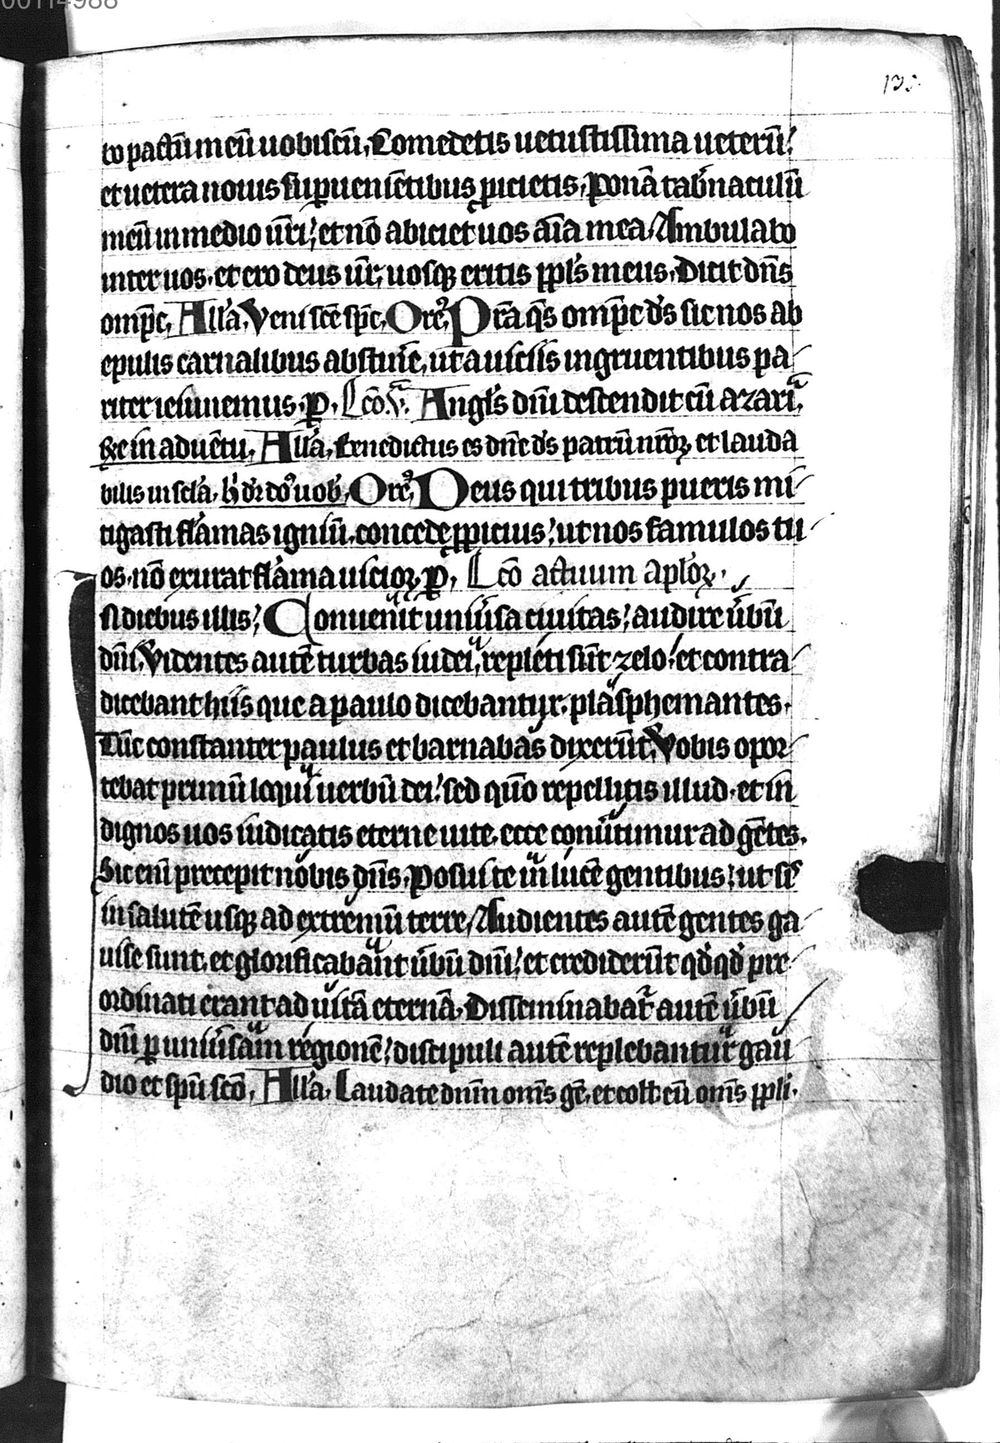 00114988
135.
bo pactū meū uobiscū, Comedetis uetustissima ueterū;
et uetera nouis suꝑuenīetibus ꝓicietis, Ponā tab̄naculū
meū in medio ūri; et nō abiciet uos aīa mea, Ambulabo
inter uos, et ero deus ūr, uosqꝫ eritis ppl̄s meus, Dicit dn̄s
omp̄s, All̄a, Veni scē sp̄c, Orō, Prā q̄s omp̄s ds̄ sic nos ab
epulis carnalibus abstinē, ut a uiciis ingruentibus pa
riter ieiunemus, ꝑ, Lcō.v. Angl̄s dn̄i descendit cū azaria,
ꝛc̄ in aduētu, All̄a, Benedictus es dn̄e ds̄ patrū nr̄oꝝ et lauda
bilis in scl̄a, Orō, Deus qui tribus pueris mi
tigasti flāmas igniū, concede ꝓpicius; ut nos famulos tu
os, nō exurat flāma uicioꝝ, ꝑ, Lcō actuum apl̄oꝝ.
In diebus illis; Conuenit uniūsa ciuitas; audire ūbū
dn̄i, Videntes autē turbas iudei, repleti sūt zelo; et contra
dicebant hiis que a paulo dicebantur, plasphemantes,
Tūc constanter paulus et barnabas dixerūt, Vobis opor
tebat primū loqui uerbū dei; sed qūo repellitis illud, et in
dignos uos iudicatis eterne uite, ecce conūtimur ad gētes,
Sic eni precepit nobis dn̄s, Posui te in lucē gentibus; ut sis
in salutē usqꝫ ad extremū terre, Audientes autē gentes ga
uise sunt, et glorificabant ūbū dn̄i; et crediderūt qd̄qd̄ pre
ordinati erant ad uitā eternā, Disseminabat̄ autē ūbū
dn̄i ꝑ uniūsam regionē; discipuli autē replebantur gau
dio et spū scō, All̄a, Laudate dnm̄ oms̄ gē, et coll̄ eū oms̄ ppli.